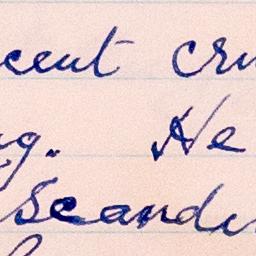 cent cru
ng. He
Scandi